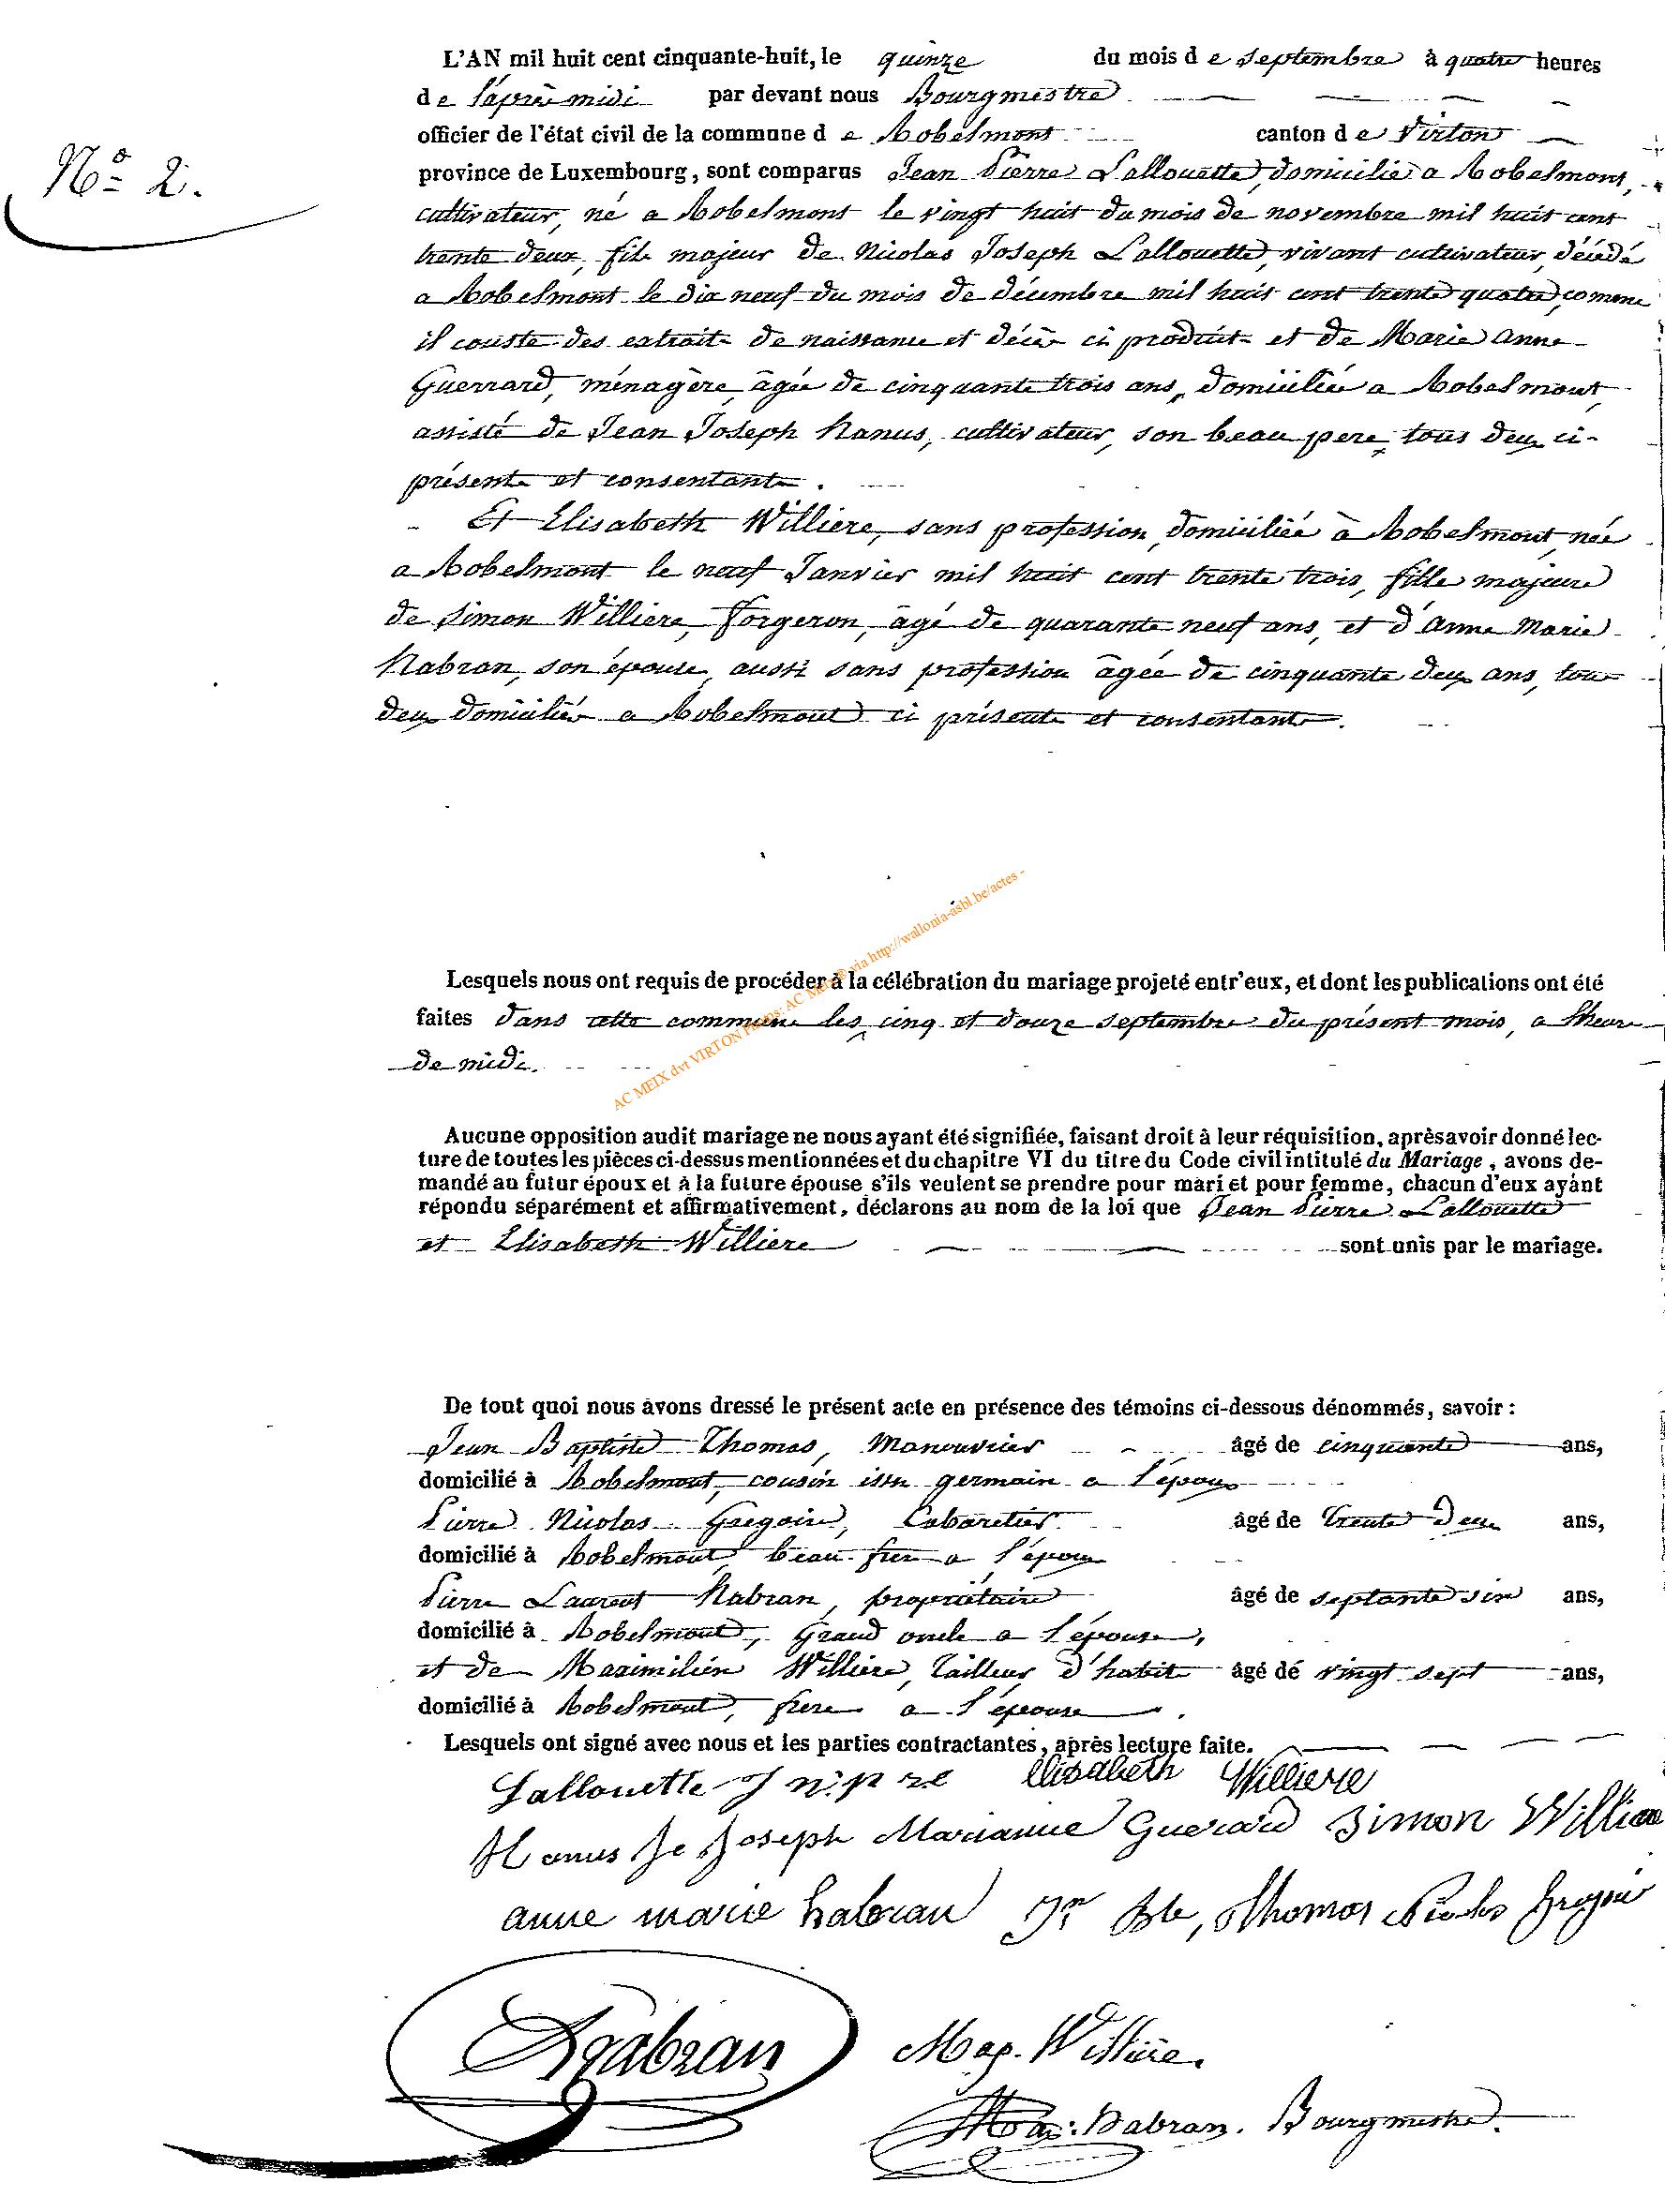 L'AN mil huit cent cinquante-huit, le quinze du mois de septembre à quatre heures
de l'après midi par devant nous Bourgmestre
officier de l'état civil de la commune de Robelmont canton de Virton
N° 2.
province de Luxembourg, sont comparus Jean Pierre Lallouette, domicilié a Robelmont,
cultivateur, né a Robelmont le vingt huit du mois de novembre mil huit cent
trente deux, fils majeur de Nicolas Joseph Lallouette, vivant cultivateur, décédé
a Robelmont le dix neuf du mois de décembre mil huit cent trente quatre, comme
il conste des extraits de naissance et décès ci produits et de Marie Anne
Guerrard, ménagère, âgée de cinquante trois ans, domiciliée a Robelmont,
assisté de Jean Joseph Hanus, cultivateur, son beau pere, tous deux ci-
présents et consentants.
Et Elisabeth Williere, sans profession, domiciliée à Robelmont, née
a Robelmont le neuf Janvier mil huit cent trente trois, fille majeure
de Simon Williere, Forgeron, âgé de quarante neuf ans, et d'Anne Marie
Habran, son épouse, aussi sans profession âgée de cinquante deux ans, tous
deux domiciliés a Robelmont ci présents et consentants.
Lesquels nous ont requis de procéder à la célébration du mariage projeté entr'eux, et dont les publications ont été
faites dans cette commune les cinq et douze septembre du présent mois, a l'heure
de midi.
AC MEIX dvt VIRTON via http://wallonia-asbl.be/actes -
Aucune opposition audit mariage ne nous ayant été signifiée, faisant droit à leur réquisition, après avoir donné lec-
ture de toutes les pièces ci-dessus mentionnées et du chapitre VI du titre du Code civil intitulé du Mariage, avons de-
mandé au futur époux et à la future épouse s'ils veulent se prendre pour mari et pour femme, chacun d'eux ayant
répondu séparément et affirmativement, déclarons au nom de la loi que Jean Pierre Lallouette
et Elisabeth Williere sont unis par le mariage.
De tout quoi nous avons dressé le présent acte en présence des témoins ci-dessous dénommés, savoir :
Jean Baptiste Thomas, Manouvrier âgé de cinquante ans,
domicilié à Robelmont, cousin issu germain a l'époux
Pierre Nicolas Gregoire, Cabaretier âgé de trente deux ans,
domicilié à Robelmont, beau frere a l'époux
Pierre Laurent Habran, propriétaire âgé de septante six ans,
domicilié à Robelmont, Grand oncle a l'épouse,
et de Maximilien Williere, Tailleur d'habits âgé de vingt sept ans,
domicilié à Robelmont, frere a l'épouse.
Lesquels ont signé avec nous et les parties contractantes, après lecture faite.
Lallouette Elisabeth Williere
Hanus Joseph Marianne Guerard Simon Williere
anne marie habran Jn Bte, Thomas Nicolas
Habran Max. Williere.
Habran. Bourgmestre.